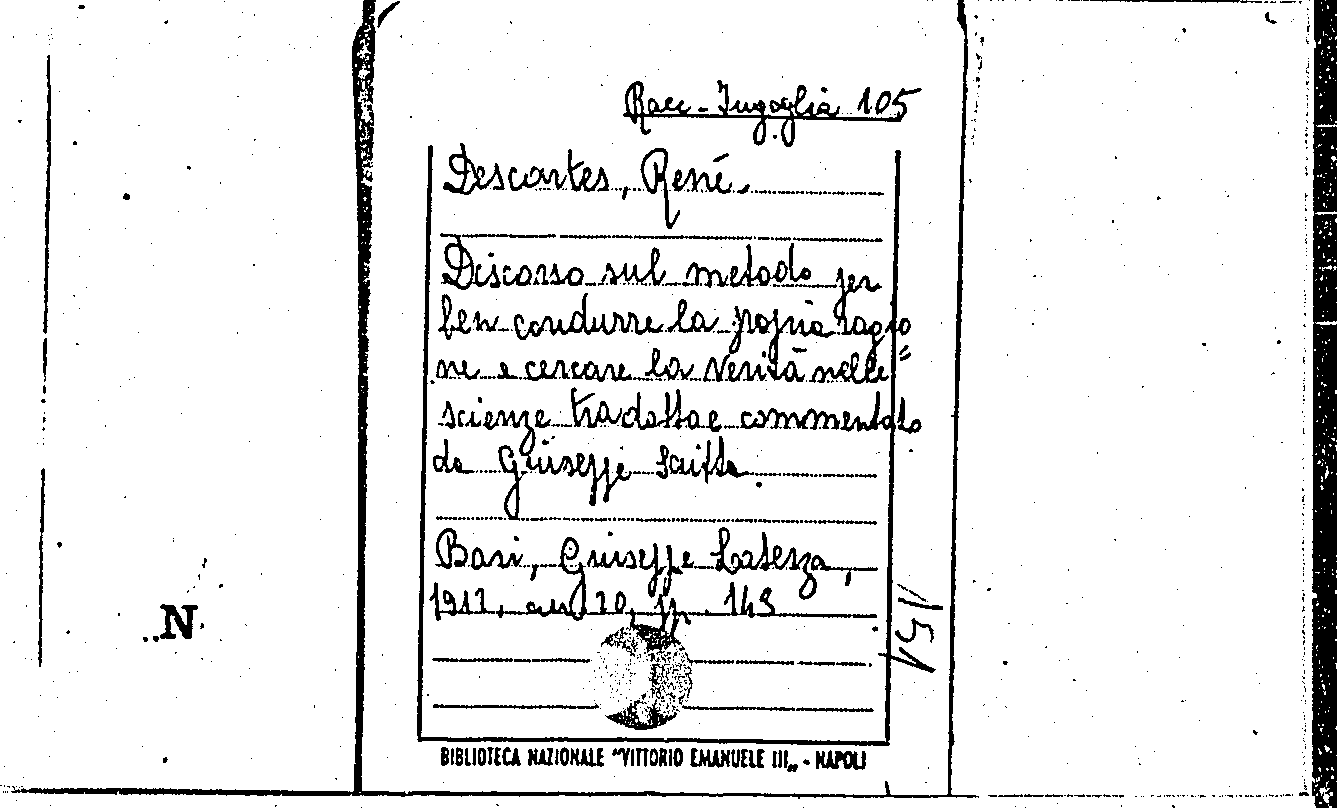 Racc. Ingoglia 105
Descartes, René.
Discorso sul metodo per
ben condurre la propria ragio=
ne e cercare la verità nelle
scienze tradotto e commentato
da Giuseppe Saitta.
Bari, Giuseppe Laterza,
1912, in 20, pp. 149
151
N
BIBLIOTECA NAZIONALE "VITTORIO EMANUELE III„ - NAPOLI